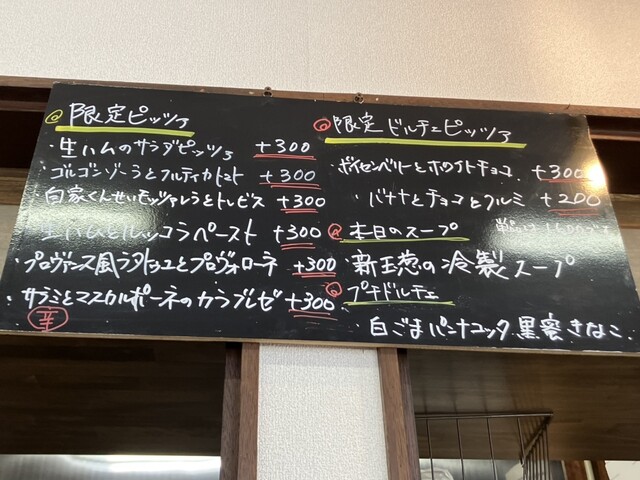 @限定ピッツァ
・生ハムのサラダピッツァ +300
・ゴルゴンゾーラとフルティカトマト +300
・自家くんせいモッツァレラとトレビス +300
・生ハムとルッコラペースト +300
・プロヴァンス風ラタトゥユとプロヴォローネ +300
・サラミとマスカルポーネのカラブレゼ +300
辛
@限定ドルチェピッツァ
・ボイセンベリーとホワイトチョコ +300
・バナナとチョコとクルミ +200
@本日のスープ
・新玉葱の冷製スープ
@プチドルチェ
・白ごまパンナコッタ 黒蜜きなこ